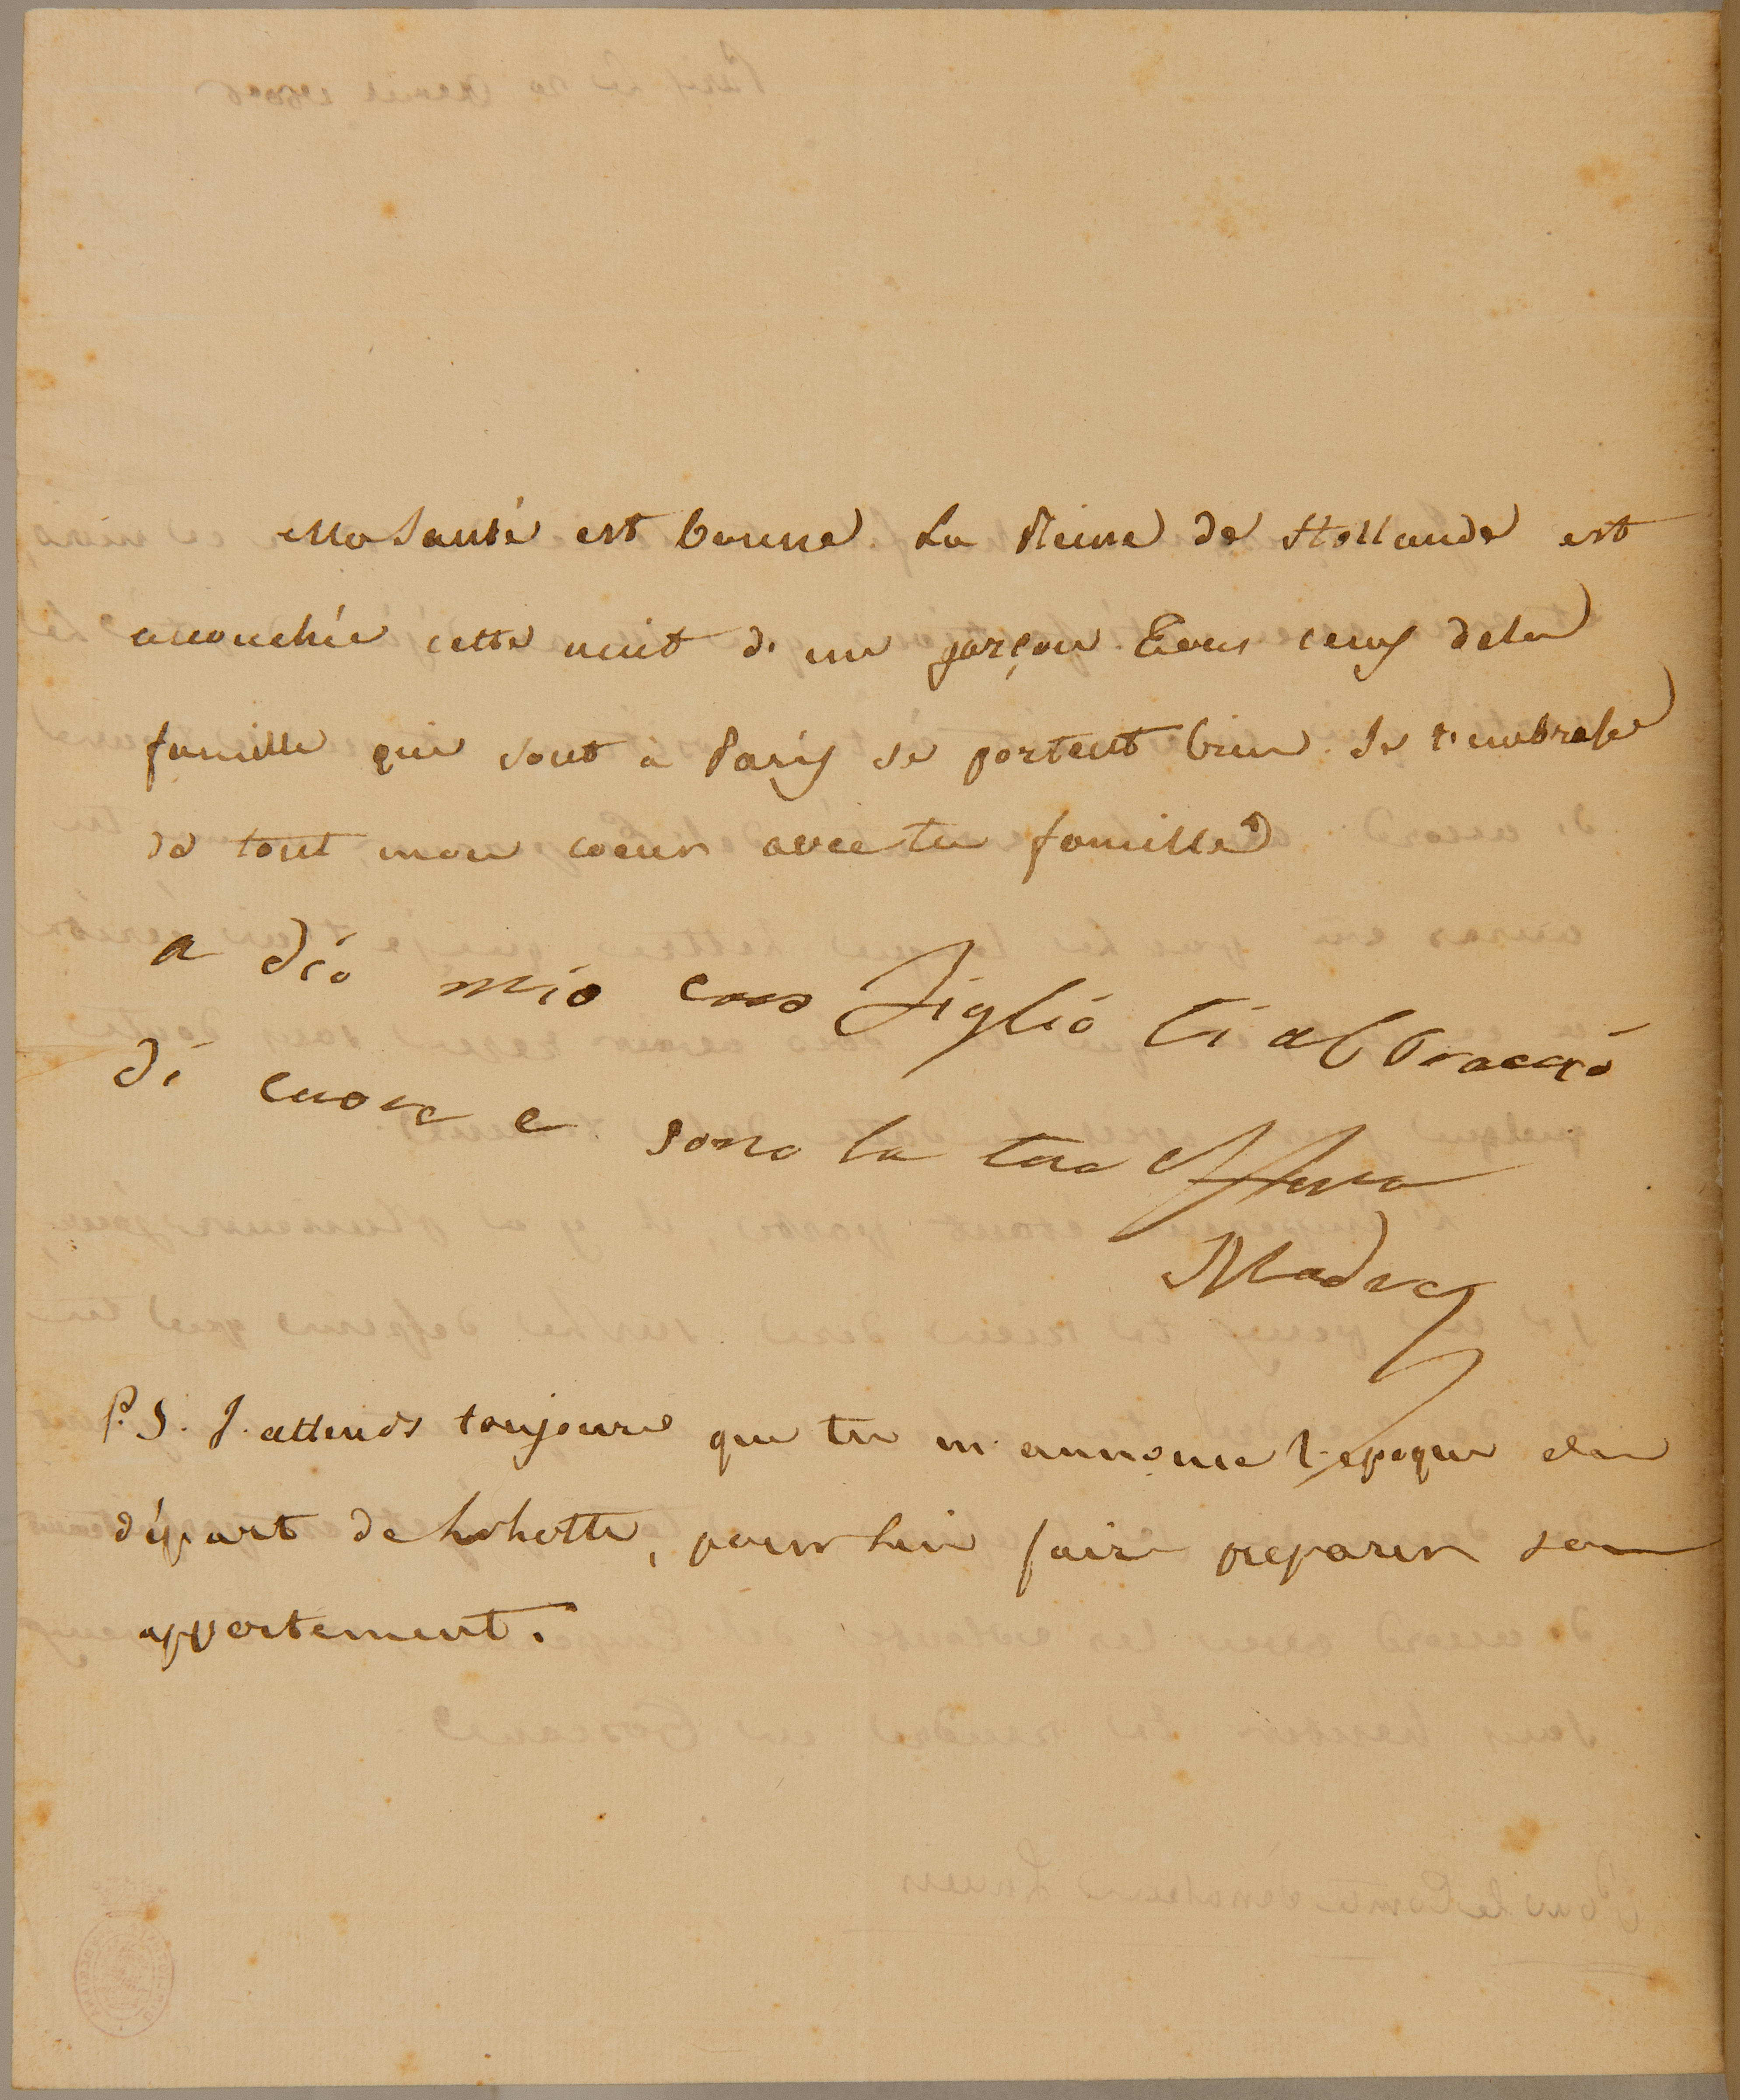 Ma Santé est bonne La Reine de Hollande est
accouchée cette nuit d'un garçon. Tous ceux dela
famille qui sont à Paris se portent bien. Je t'embrasse
de tout mon coeur avec ta famille
a dio mio caro Figlio ti abbraccio
di cuore e sono la tua Affma
Madre
P.S. J'attends toujours que tu m'annonce l'epoque du
départ de Lolotte, pour lui faire preparer son
appartement.